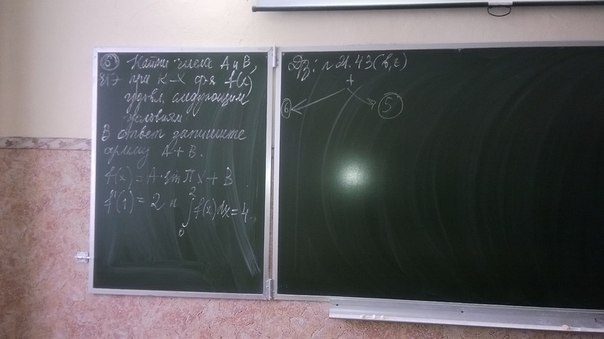 ⑥ Найти числа А и В,
817 при к-х ф-я f(x)
удовл. следующим
условиям
В ответ запишите
сумму А+В.
f(x) = A·sin πx + B
f'(1) = 2 и ∫₀² f(x)dx = 4
Дз: № 21.43 (в, г)
+
⑥ ⑤